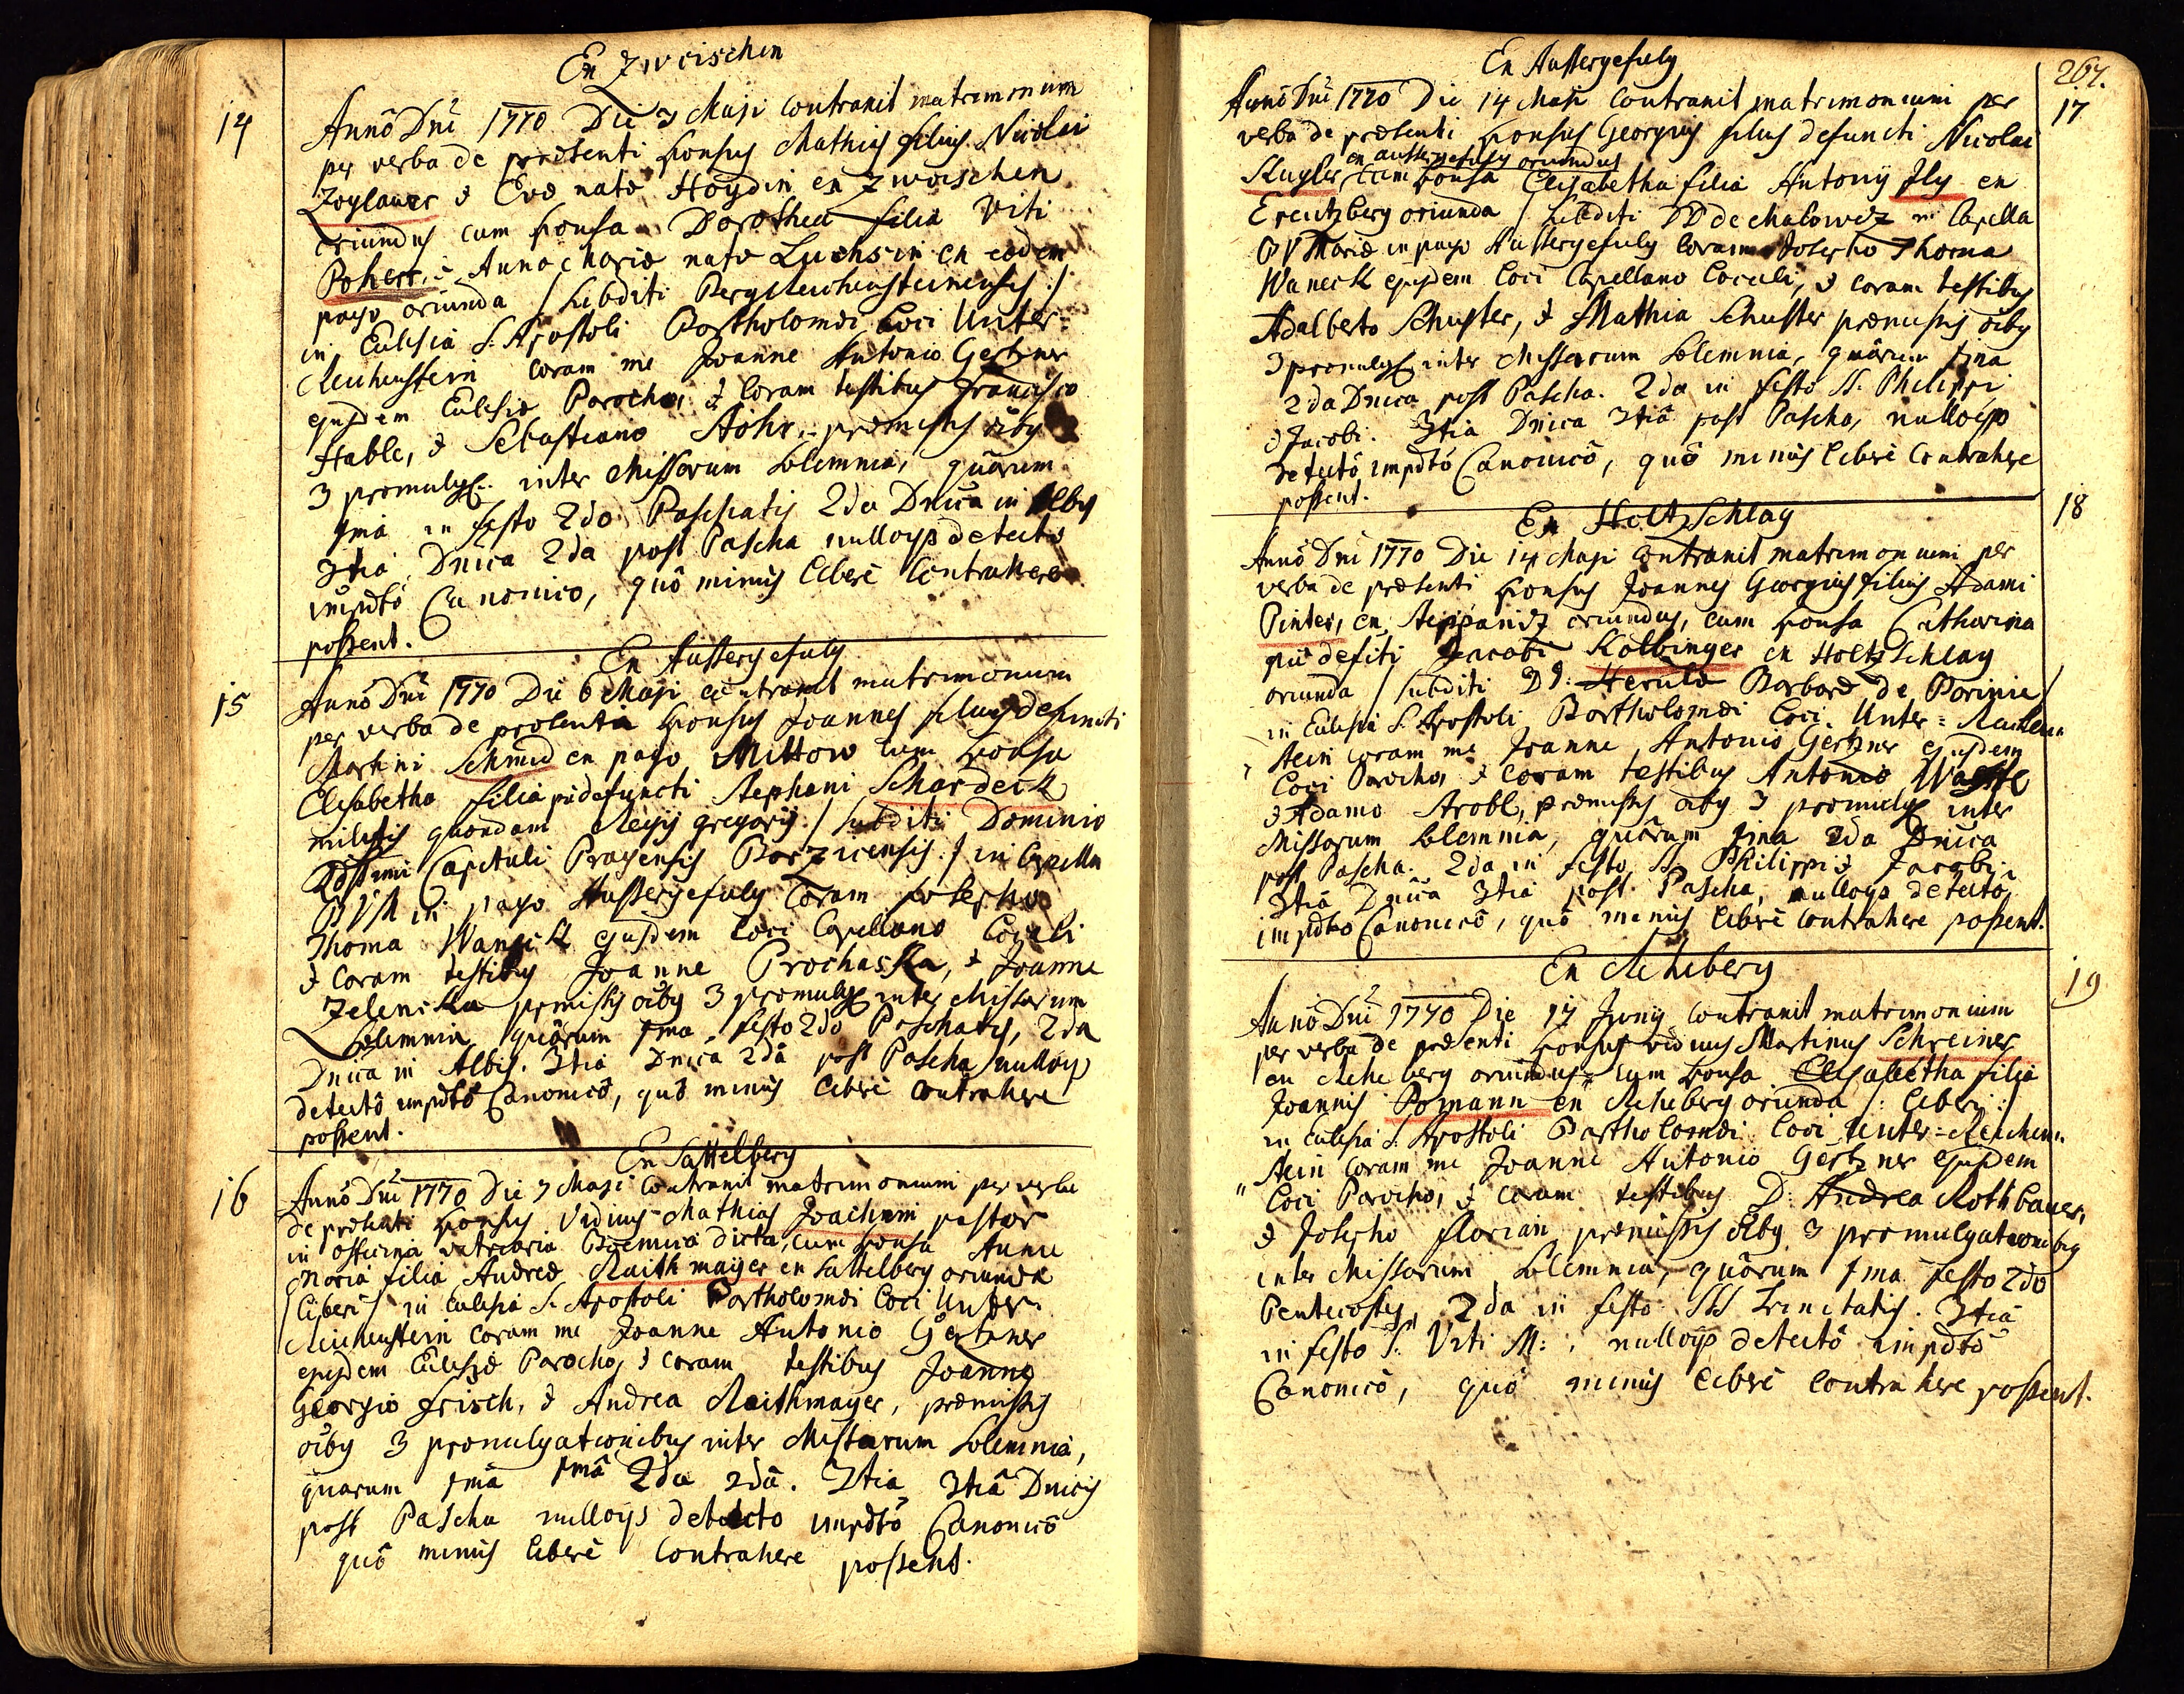 Ex Zwoischen
14
Anno Dni 1770 Die 3 Maji contraxit matrimonium
per verba de praesenti sponsus Mathias filius Nicolai
Zoylauer & Evae natae Haydin ex Zwoischen
oriundus cum sponsa Dorothea filia Viti
Poherr & Anna Maria nata Luchsin ex eodem
pago oriunda /subditi Bergreichensteinenses:/
in Ecclesia S. Apostoli Bartholomaei Loci Unter=
Reichenstein coram me Joanne Antonio Gertzner
ejusdem Ecclesiae Parocho, & coram testibus Francisco
Hable, & Sebastiano Stöhr, praemissis oibg
3 promulg: inter Missarum solemnia, quârum
1ma in festo 2do Paschatis 2da Dnica in Albis
3tia Dnica 2da post Pascha nulloqs detecto
impdto Canonico, quô minus liberè contrahere
possent.
Ex Aussergefuly
15
Anno Dni 1770 Die 6 Maji contraxit matrimonium
per verba de praesenti sponsus Joannes filius defuncti
Martini Schmid ex pago Mittow cum sponsa
Elisabetha filia pie defuncti Stephani Schardeck
militis quondam Regij gregarij / subditi Dominio
Capituli Pragensis / in Capella
B V M in pago Aussergefuly Coram Josepho
Thoma Waneck ejusdem loci Capellano Locali
& coram testibus Joanne Prochaska, & Joanne
Zelenka praemissis oibg 3 promulg inter Missarum
Solemnia, quârum 1ma festo 2do Paschatis, 2da
Dnica in Albis. 3tia Dnica 2dâ post Pascha nulloqs
detectô impdtô Canonicô, quô minus liberè contrahere
possent.
Ex Sattelberg
16
Anno Dni 1770 Die 7 Maji Contraxit matrimonium per verba
de praesenti sponsus Viduus Mathias Joachim pastor
in officina vitriaria dicta, cum sponsa Anna
Maria filia Andreae Raithmayer ex Sattelberg oriunda
/liberi/ in Ecclesia S. Apostoli Bartholomaei Loci Unter
Reichenstein coram me Joanne Antonio Gertzner
ejusdem Ecclesiae Parocho, & coram testibus Joanne
Georgio Frisch, & Andrea Raithmayer, praemissis
oibg 3 promulgationibus inter Missarum Solemnia,
quarum 1mâ 1mâ 2da 2dâ. 3tia 3tiâ Dnicis
post Pascha nulloqs detecto impdtô Canonicô
quô minus liberè contrahere possent.
267.
Ex Aussergefuly
17
Anno Dni 1770 Die 14 Maji Contraxit matrimonium per
verba de praesenti sponsus Georgius filius defuncti Nicolai
ex aussergefuly oriundus
Kugler, cum sponsa Elisabetha filia Antonij Ily ex
Creutzberg oriunda / subditi DD de Malowetz in Capella
B V Mariae in pago Aussergefuly Coram Josepho Thoma
Waneck ejusdem Loci Capellano Locali, & coram testibus
Adalberto Schuster, & Mathia Schuster praemissis oibg
3 promulg: inter Missarum Solemnia, quârum 1ma
2da Dnica post Pascha. 2da in festo SS. Philippi
& Jacobi. 3tia Dnica 3tiâ post Pascha, nulloqs
detectô impdtô Canonicô, quô minus liberè contrahere
possent.
Ex HoltzSchlag
18
Anno Dni 1770 Die 14 Maji contraxit matrimonium per
verba de praesenti sponsus Joannes Georgius filius Adami
Pinter, ex Steppanitz oriundus, cum sponsa Catharina
pie defcti Jacobi Kolbinger ex HoltzSchlag
oriunda / subditi Barbarae de Porinie /
in Ecclesia S. Apostoli Bartholomaei Loci Unter=Reichen=
stein coram me Joanne Antonio Gertzner ejusdem
Loci Parocho, & coram testibus Antonio
& Adamo Strobl, praemissis oibg 3 promulg inter
Missarum Solemnia, quârum 1ma 2da Dnica
post Pascha. 2da in festo SS. Philippi & Jacobi
3tiâ Dnica 3tiâ post Pascha, nulloqs detectô
impdto Canonicô, quô minus liberè contrahere possent.
Ex Reheberg
19
Anno Dni 1770 Die 17 Junij contraxit matrimonium
per verba de praesenti sponsus viduus Martinus Schreiner
ex Reheberg oriundus, cum sponsa Elisabetha filia
Joannis Pomann ex Reheberg oriunda /: liberi :/
in Ecclesia S. Apostoli Bartholomaei Loci Unter=Reichen=
stein coram me Joanne Antonio Gertzner ejusdem
Loci Parocho, & coram testibus D: Andrea Rothbauer,
& Josepho Florian, praemissis oibg 3 promulgationibg
inter Missarum Solemnia, quârum 1ma festo 2do
Pentecostes, 2da in festo SS Trinitatis. 3tia
in festo S. Viti M:, nulloqs detectô impdtô
Canonicô, quô minus liberè contrahere possent.